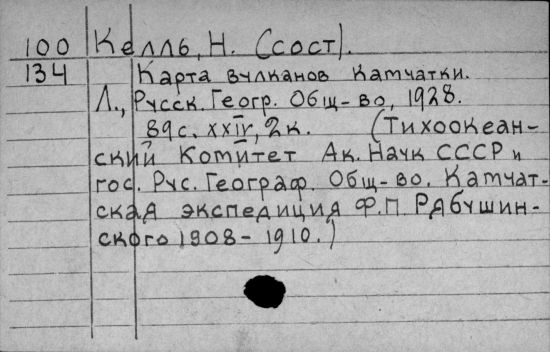 100 Келль, Н. (сост).
134 Карта вулканов Камчатки.
Л., Русск. Геогр. Общ-во, 1928.
89с. XXIV, 2к. (Тихоокеан-
ский Комитет Ак. Наук СССР и
гос. Рус. Географ. Общ-во. Камчат-
ская экспедиция Ф.П. Рябушин-
ского 1908-1910.)